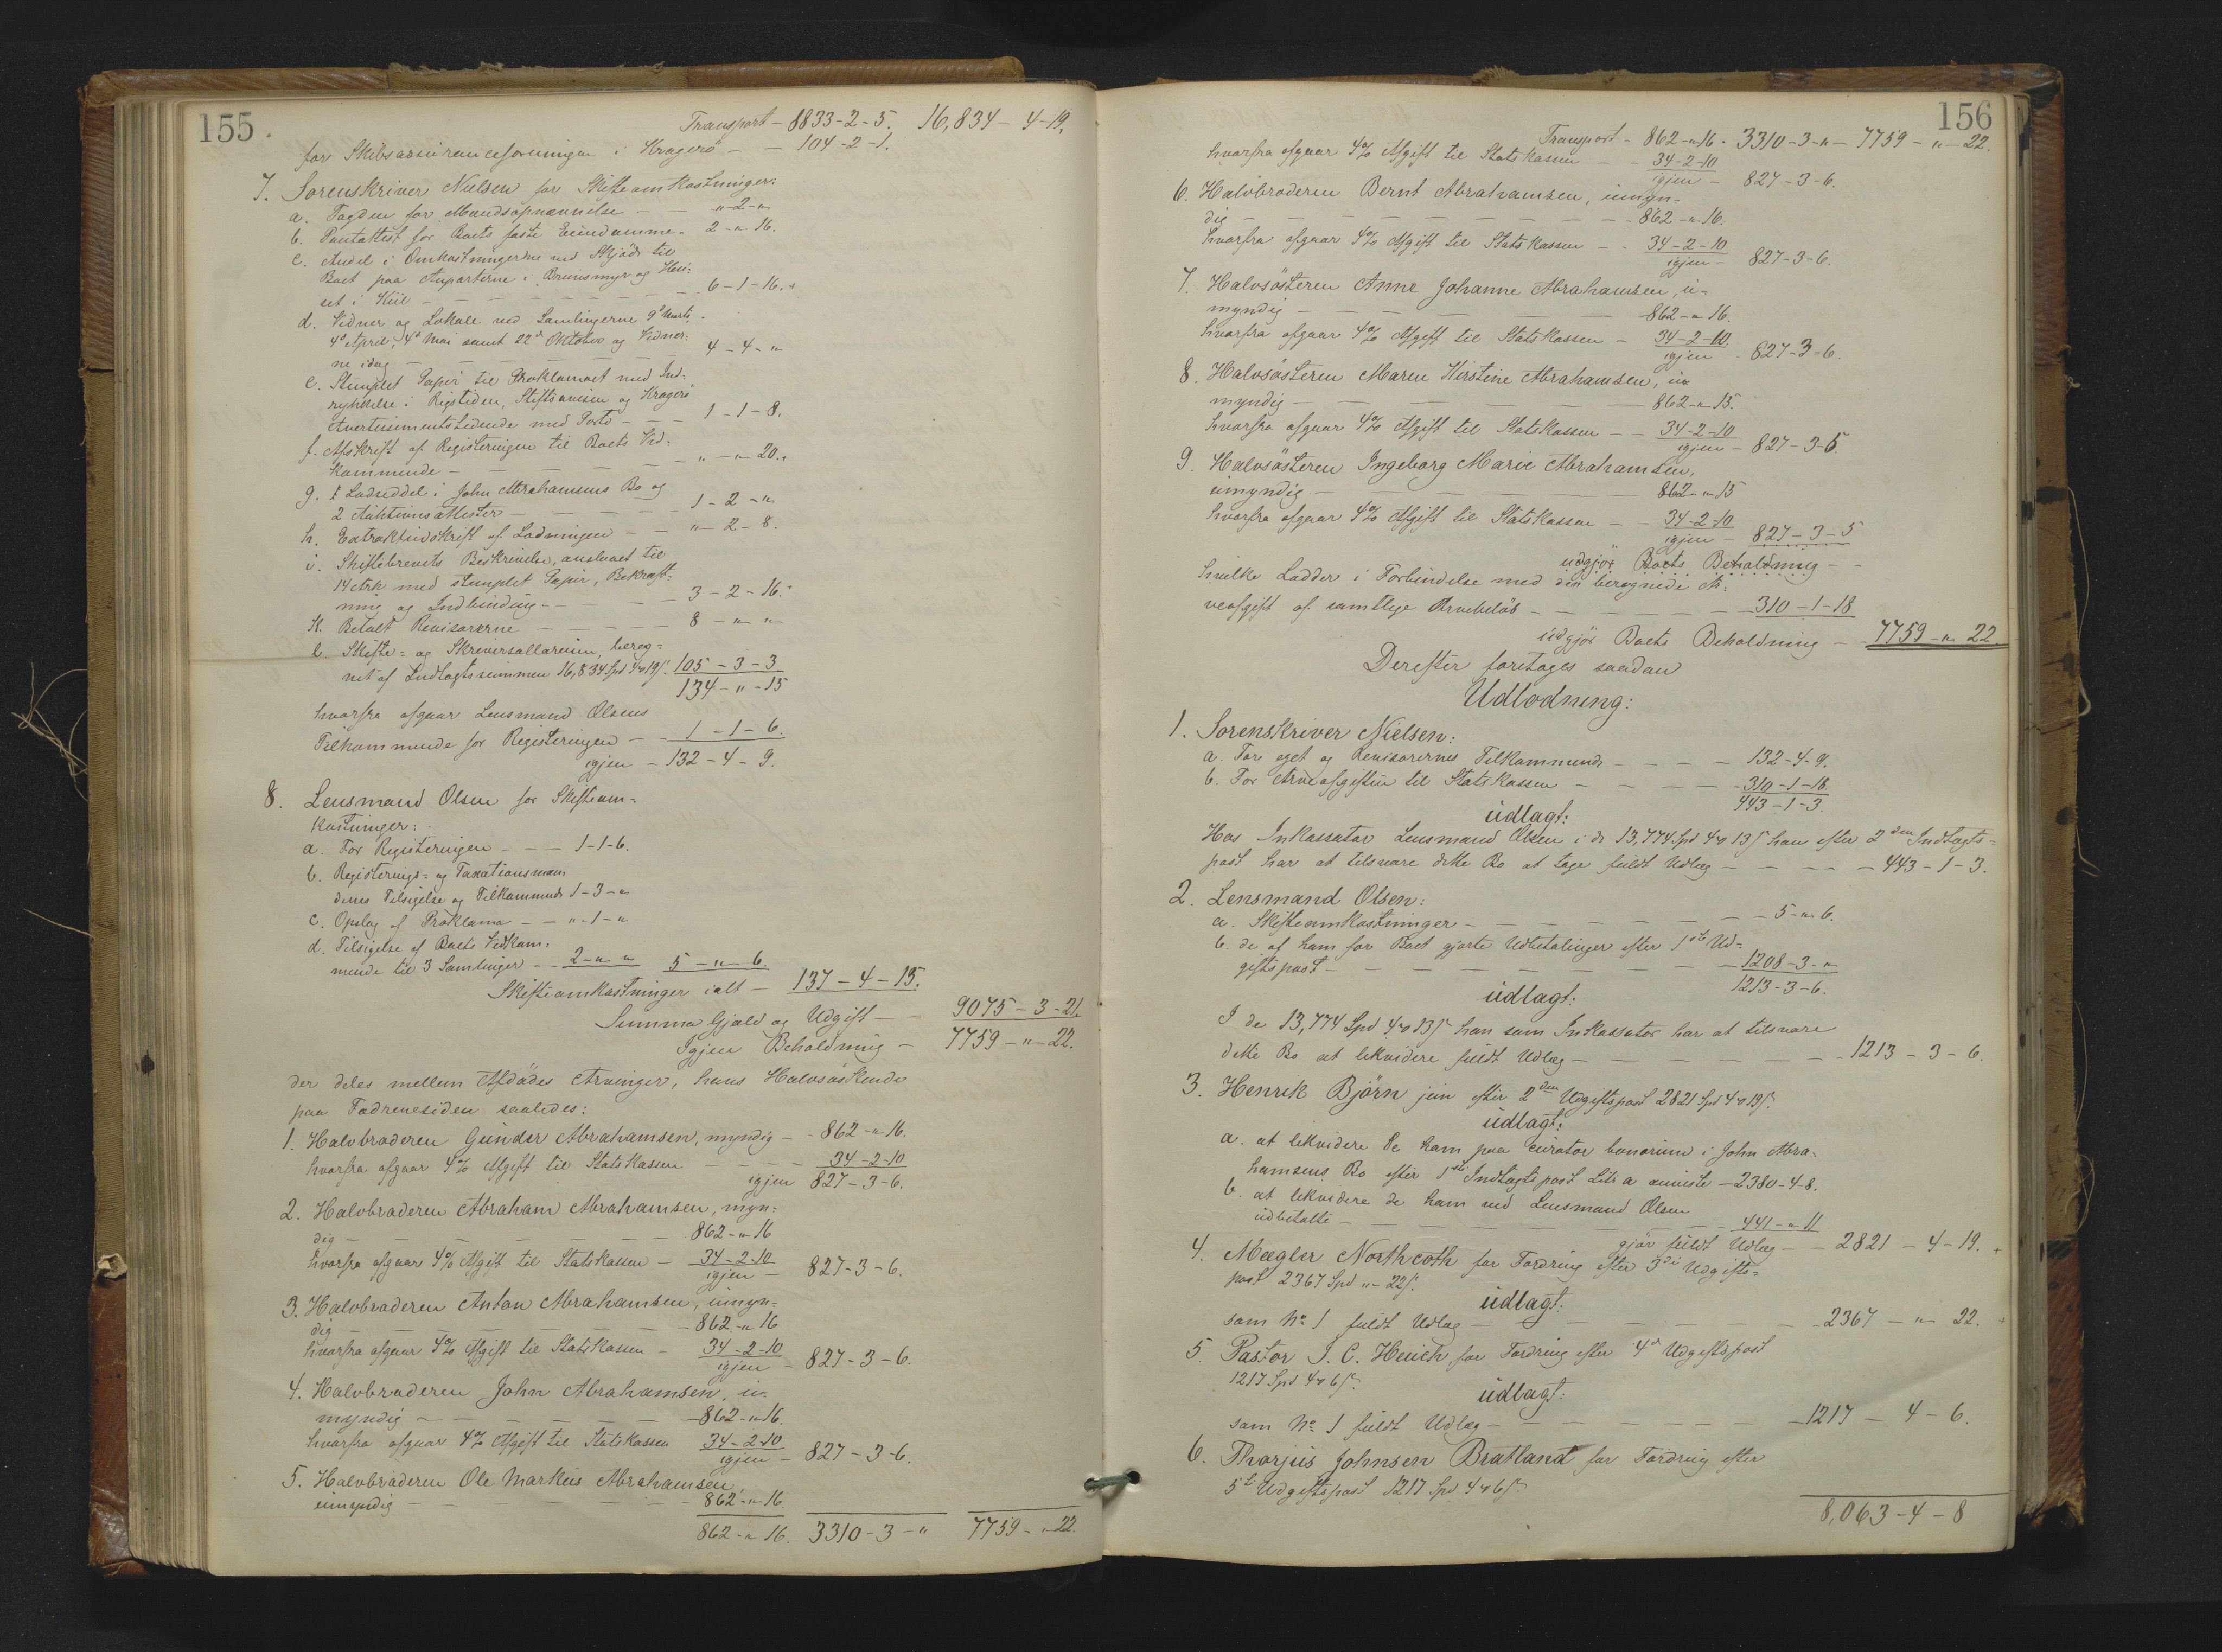 155.
Transport – 8833-2-5. 16,834 – 4-19.
for Skibsassuranceforeningen i Kragerö – – 104-2-1.
7. Sorenskriver Nielsen for Skifteomkostninger:
a. Tagden for Mandsopnævnelse – – "-2-"
b. Pantattest for Boets faste Eiendomme – 2-"-16.
c. Andel i Omkostningerne ved Skjöde til
Boet paa Anparterne i Bruusmyr og Hu:
set i Kiil – – – – – 6-1-16.
d. Vidner og Lokale ved Samlingerne 9de Marts
4de April, 4de Mai samt 22de Oktober og Vidner:
ne idag – – – – – 4-4-"
e. Stemplet Papir til Proklamaet med Ind:
rykkelse i Rigstiden, Stiftsavisen og Kragerö
Avertissementstidende med Porto – – 1-1-8.
f. Afskrift af Registeringen til Boets Ved:
kommende – – – – "-"-20.
g. 1 Lodseddel i John Abrahamsens Bo og
2 Auktionsattester – – – – 1-2-"
h. Extraktudskrift af Lodningen – – "-2-8.
i. Skiftebrevets Beskrivelse, anslaaet til
14 Ark med stemplet Papir, Bekræft:
ning og Indbinding – – – 3-2-16.
k. Betalt Revisorerne – – – – 8-"-"
l. Skifte- og Skriversallarium, bereg=
net af Indtægtssummen 16,834 Spd 4 19 s. 105-3-3
134-"-15
hvorfra afgaar Lensmand Olsens
Tilkommende for Registeringen – 1-1-6.
igjen – 132-4-9.
8. Lensmand Olsen for Skifteom=
kostninger:
a. For Registeringen – – 1-1-6.
b. Registerings- og Taxationsmæn
denes Tilsigelse og Tilkommende 1-3-"
c. Opslag af Proklama – – "-1-"
d. Tilsigelse af Boets Vedkom:
mende til 3 Samlinger – – 2-"-" 5-"-6.
Skifteomkostninger ialt – 137-4-15.
Summa Gjæld og Udgift – 9075-3-21.
Igjen Beholdning – 7759-"-22.
der deles mellem Afdödes Arvinger, hans Halvsöskende
paa Fædrenesiden saaledes:
1. Halvbroderen Gunder Abrahamsen, myndig – 862-"-16.
hvorfra afgaar 4% Afgift til Statskassen – – – 34-2-10
igjen 827-3-6.
2. Halvbroderen Abraham Abrahamsen, myn=
dig – – – – – – 862-"-16
hvorfra afgaar 4% Afgift til Statskassen – 34-2-10
igjen – 827-3-6.
3. Halvbroderen Anton Abrahamsen, umyn=
dig – – – – – – 862-"-16
hvorfra afgaar 4% Afgift til Statskassen – 34-2-10
igjen – 827-3-6.
4. Halvbroderen John Abrahamsen, u=
myndig – – – – – 862-"-16.
hvorfra afgaar 4% Afgift til Statskassen 34-2-10
igjen – 827-3-6.
5. Halvbroderen Ole Markus Abrahamsen,
umyndig – – – – – 862-"-16.
862-"-16. 3310-3-" 7759-"-22.
156
Transport – 862-"-16. 3310-3-" – 7759-"-22.
hvorfra afgaar 4% Afgift til Statskassen – – 34-2-10
igjen – 827-3-6.
6. Halvbroderen Bernt Abrahamsen, umyn=
dig – – – – – – – 862-"-16.
hvorfra afgaar 4% Afgift til Statskassen – – 34-2-10
igjen – 827-3-6.
7. Halvsösteren Anne Johanne Abrahamsen, u=
myndig – – – – – – 862-"-16.
hvorfra afgaar 4% Afgift til Statskassen – 34-2-10.
igjen – 827-3-6.
8. Halvsösteren Maren Kirstine Abrahamsen, u=
myndig – – – – – – 862-"-15.
hvorfra afgaar 4% Afgift til Statskassen – – 34-2-10
igjen – 827-3-5.
9. Halvsösteren Ingeborg Marie Abrahamsen,
umyndig – – – – – 862-"-15
hvorfra afgaar 4% Afgift til Statskassen – – 34-2-10
igjen – 827-3-5
udgjör Boets Beholdning –
hvilke Lodder i Forbindelse med den beregnede Ar:
veafgift af samtlige Arvebelöb – – – – 310-1-18
udgjör Boets Beholdning – 7759-"-22
Derefter foretages saadan
Udlodning:
1. Sorenskriver Nielsen:
a. For eget og Revisorernes Tilkommende – – – – 132-4-9.
b. For Arveafgiften til Statskassen – – – – 310-1-18.
443-1-3.
udlagt:
Hos Inkassator Lensmand Olsen i de 13,774 Spd 4 13 s han efter 2den Indtægts=
post har at tilsvare dette Bo at tage fuldt Udlæg – – – – 443-1-3.
2. Lensmand Olsen:
a. Skifteomkostninger – – – – – – 5-"-6.
b. de af ham for Boet gjorte Udbetalinger efter 1ste Ud=
giftspost – – – – – – – 1208-3-"
1213-3-6.
udlagt:
I de 13,774 Spd 4 13 s han som Inkassator har at tilsvare
dette Bo at likvidere fuldt Udlæg – – – – – 1213-3-6.
3. Henrik Björn jun efter 2den Udgiftspost 2821 Spd 4 19 s.
udlagt:
a. at likvidere de ham paa curator bonorum i John Abra:
hamsens Bo efter 1ste Indtægtspost Litr a anviste – 2380-4-8.
b. at likvidere de ham ved Lensmand Olsen
udbetalte – – – – – – 441-"-11
gjör fuldt Udlæg – – 2821-4-19.
4. Mægler Northcoth for Fordring efter 3die Udgifts=
post 2367 Spd " 22 s.
udlagt:
som No 1 fuldt Udlæg – – – – – – 2367-"-22.
5. Pastor J. C. Heuch for Fordring efter 4de Udgiftspost
1217 Spd 4 6 s.
udlagt:
som No 1 fuldt Udlæg – – – – – – 1217-4-6.
6. Thorjus Johnsen Bratland for Fordring efter
5te Udgiftspost 1217 Spd 4 6 s.
8,063-4-8